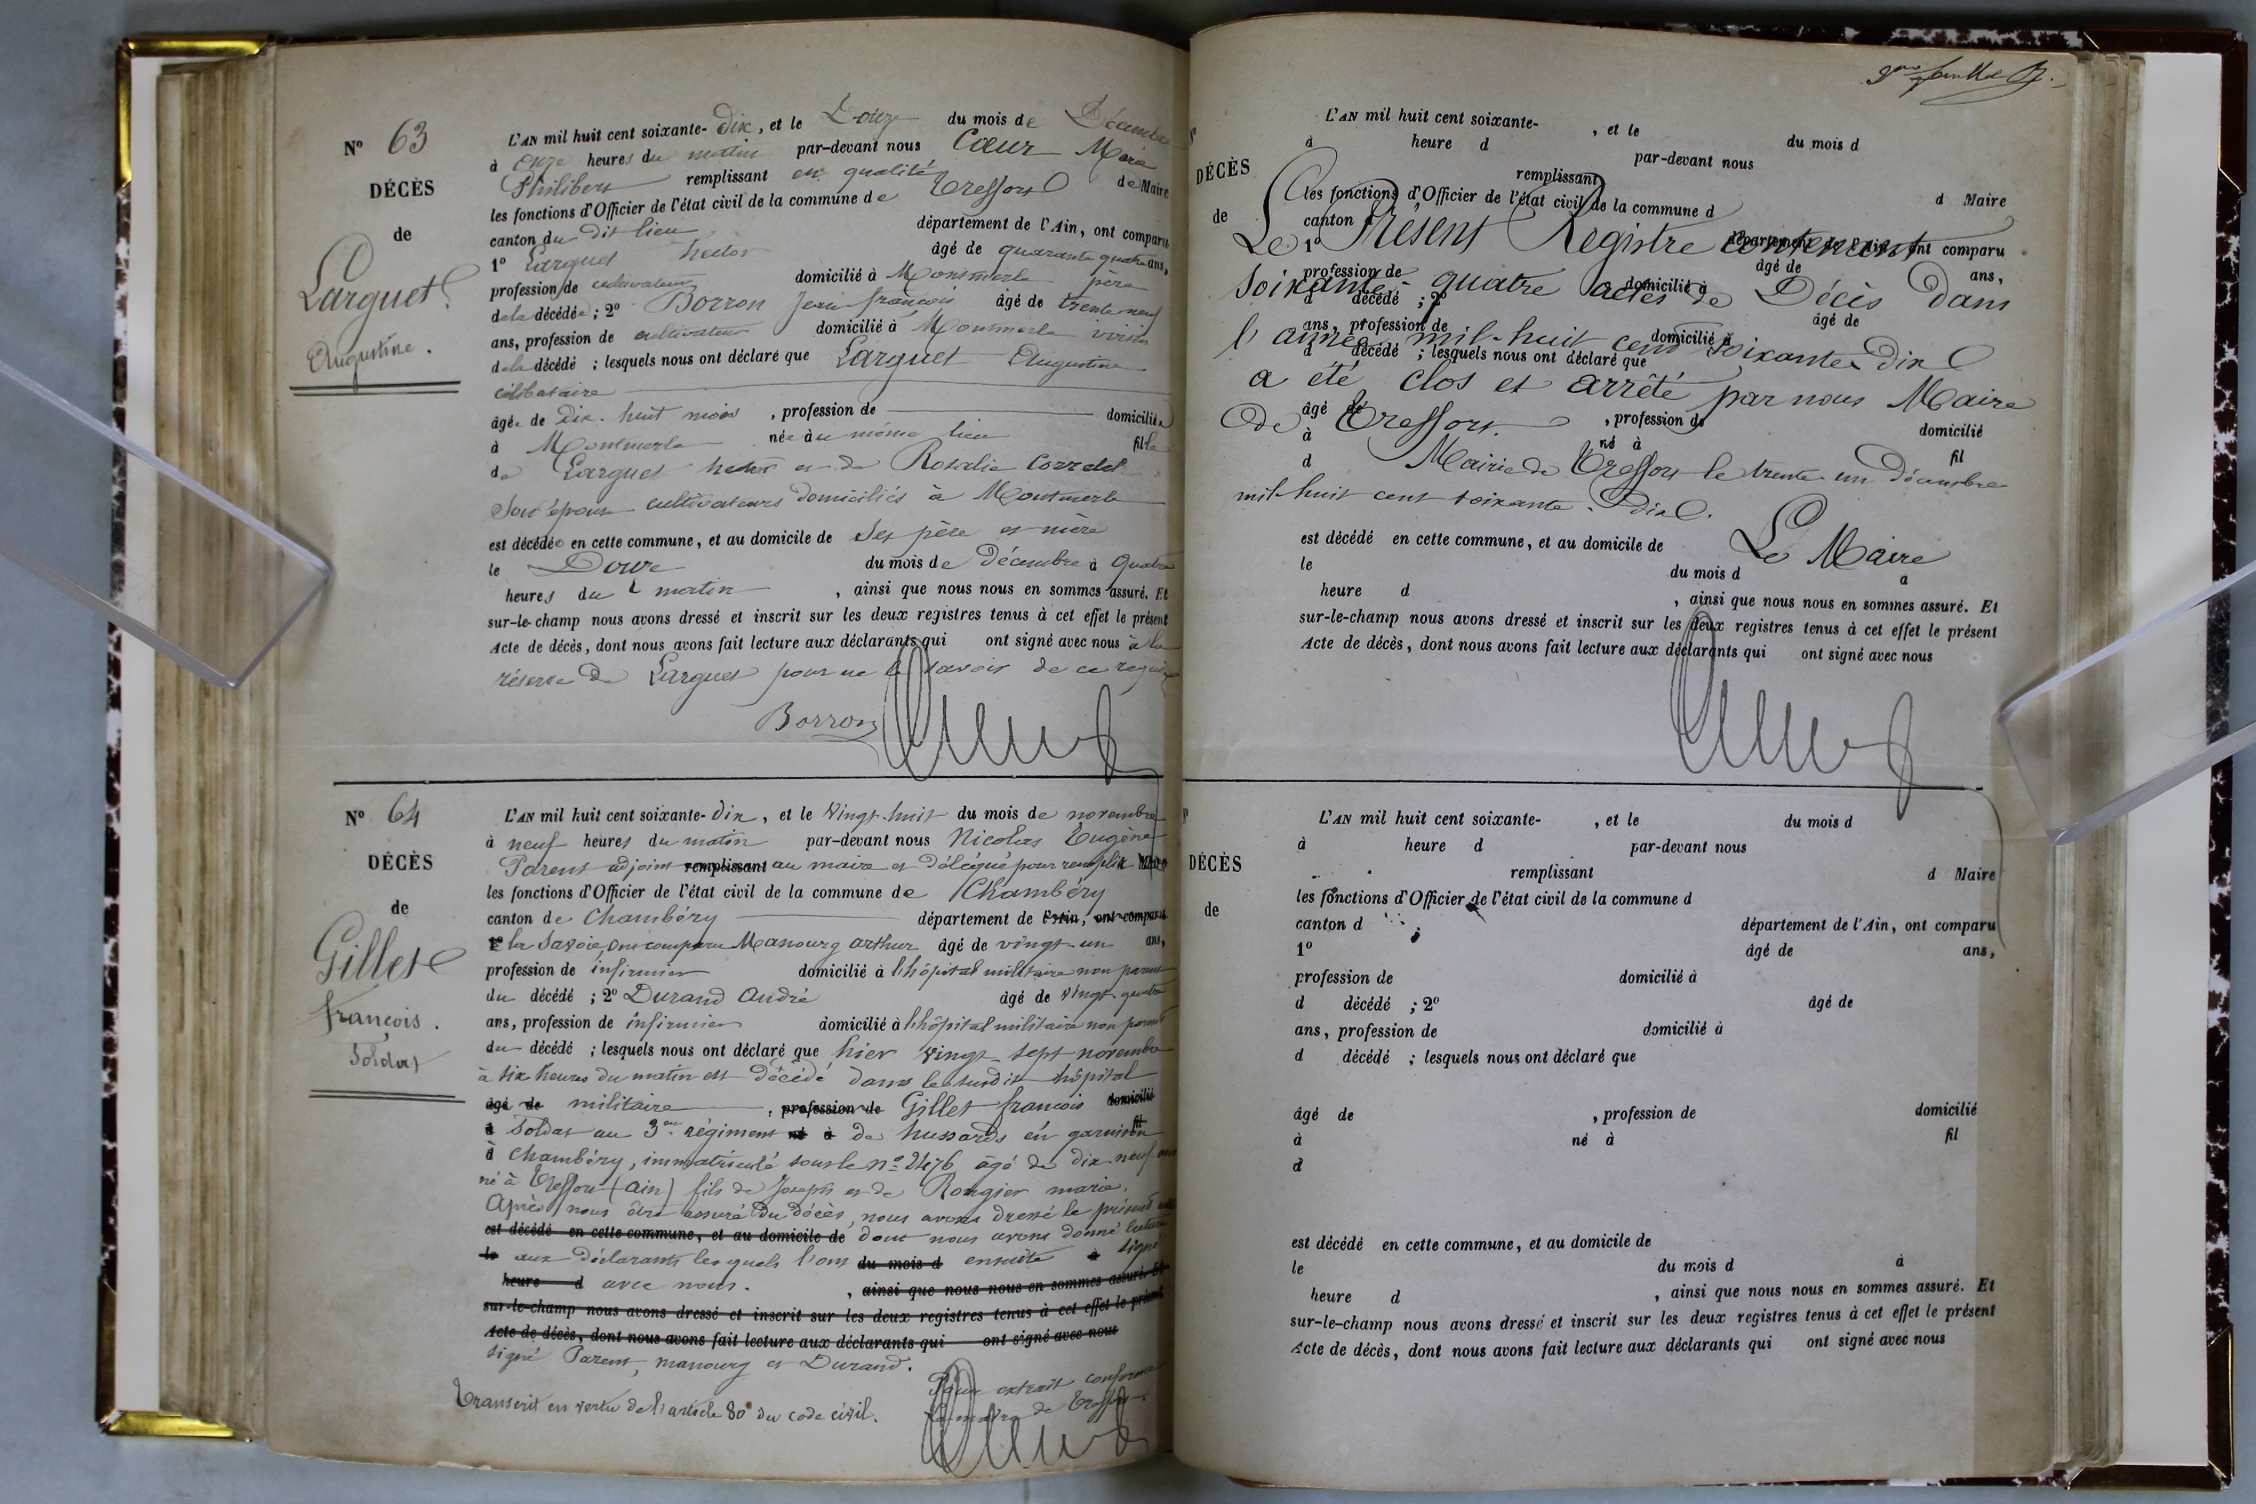 N° 63
DÉCÈS
de
Larguet
Augustine.
L'AN mil huit cent soixante-dix, et le Douze du mois de Décembre
à onze heures du matin par-devant nous Cœur Marie
Philibert remplissant en qualité de Maire
les fonctions d'Officier de l'état civil de la commune de Treffort
canton du dit lieu département de l'Ain, ont comparu
1° Larguet hector âgé de quarante quatre ans,
profession de cultivateur domicilié à Montmerle père
de la décédée; 2° Borron Jean françois âgé de trente neuf
ans, profession de cultivateur domicilié à Montmerle voisin
de la décédé ; lesquels nous ont déclaré que Larguet Augustine
célibataire
âgée de dix-huit mois , profession de domiciliée
à Montmerle née au même lieu fille
de Larguet hector et de Rosalie
Son épouse cultivateurs domiciliés à Montmerle
est décédée en cette commune, et au domicile de Ses père et mère
le Douze du mois de Décembre à quatre
heures du matin , ainsi que nous nous en sommes assuré. Et
sur-le-champ nous avons dressé et inscrit sur les deux registres tenus à cet effet le présent
Acte de décès, dont nous avons fait lecture aux déclarants qui ont signé avec nous à la
réserve de Larguet pour ne le savoir de ce requis
Borron
N° 64
DÉCÈS
de
Gillet
françois.
Soldat
L'AN mil huit cent soixante-dix, et le vingt-huit du mois de novembre
à neuf heures du matin par-devant nous Nicolas Eugène
Parent adjoint remplissant au maire et délégué pour remplir Maire
les fonctions d'Officier de l'état civil de la commune de Chambéry
canton de Chambéry département de l'Ain, ont comparu
1° la Savoie, ont comparu Manourg arthur âgé de vingt-un ans,
profession de infirmier domicilié à l'hôpital militaire non parent
du décédé ; 2° Durand André âgé de vingt-quatre
ans, profession de infirmier domicilié à l'hôpital militaire non parent
du décédé ; lesquels nous ont déclaré que hier vingt-sept novembre
à six heures du matin est décédé dans le susdit hôpital
âgé de militaire , profession de Gillet françois domicilié
à Soldat au 3me régiment né à de hussards en garnison fil
à Chambéry, immatriculé sous le n° 2476 âgé de dix-neuf ans
né à Treffort (Ain) fils de Joseph et de Rongier marie.
Après nous être assuré du décès, nous avons dressé le présent acte
est décédé en cette commune, et au domicile de dont nous avons donné lecture
le aux déclarants lesquels l'ont du mois d ensuite à signé
heure d avec nous. , ainsi que nous nous en sommes assuré. Et
sur-le-champ nous avons dressé et inscrit sur les deux registres tenus à cet effet le présent
Acte de décès, dont nous avons fait lecture aux déclarants qui ont signé avec nous
signé Parent, manourg et Durand.
Pour extrait conforme
Transcrit en vertu de l'article 80 du code civil.
Le maire de Treffort
L'AN mil huit cent soixante- , et le du mois d
à heure d par-devant nous
DÉCÈS
remplissant d Maire
les fonctions d'Officier de l'état civil de la commune d
de
canton d département de l'Ain, ont comparu
Le Présent Registre contenant
1° âgé de ans,
profession de domicilié à
soixante-quatre actes de Décès dans
d décédé ; 2° âgé de
ans, profession de domicilié à
l'année mil-huit cent soixante-Dix
d décédé ; lesquels nous ont déclaré que
a été clos et arrêté par nous Maire
âgé de , profession de domicilié
de Treffort.
à né à fil
d Mairie de Treffort le trente un Décembre
mil-huit cent soixante-Dix.
est décédé en cette commune, et au domicile de
Le Maire
le du mois d à
heure d , ainsi que nous nous en sommes assuré. Et
sur-le-champ nous avons dressé et inscrit sur les deux registres tenus à cet effet le présent
Acte de décès, dont nous avons fait lecture aux déclarants qui ont signé avec nous
L'AN mil huit cent soixante- , et le du mois d
à heure d par-devant nous
DÉCÈS
remplissant d Maire
les fonctions d'Officier de l'état civil de la commune d
de
canton d département de l'Ain, ont comparu
1° âgé de ans,
profession de domicilié à
d décédé ; 2° âgé de
ans, profession de domicilié à
d décédé ; lesquels nous ont déclaré que
âgé de , profession de domicilié
à né à fil
d
est décédé en cette commune, et au domicile de
le du mois d à
heure d , ainsi que nous nous en sommes assuré. Et
sur-le-champ nous avons dressé et inscrit sur les deux registres tenus à cet effet le présent
Acte de décès, dont nous avons fait lecture aux déclarants qui ont signé avec nous